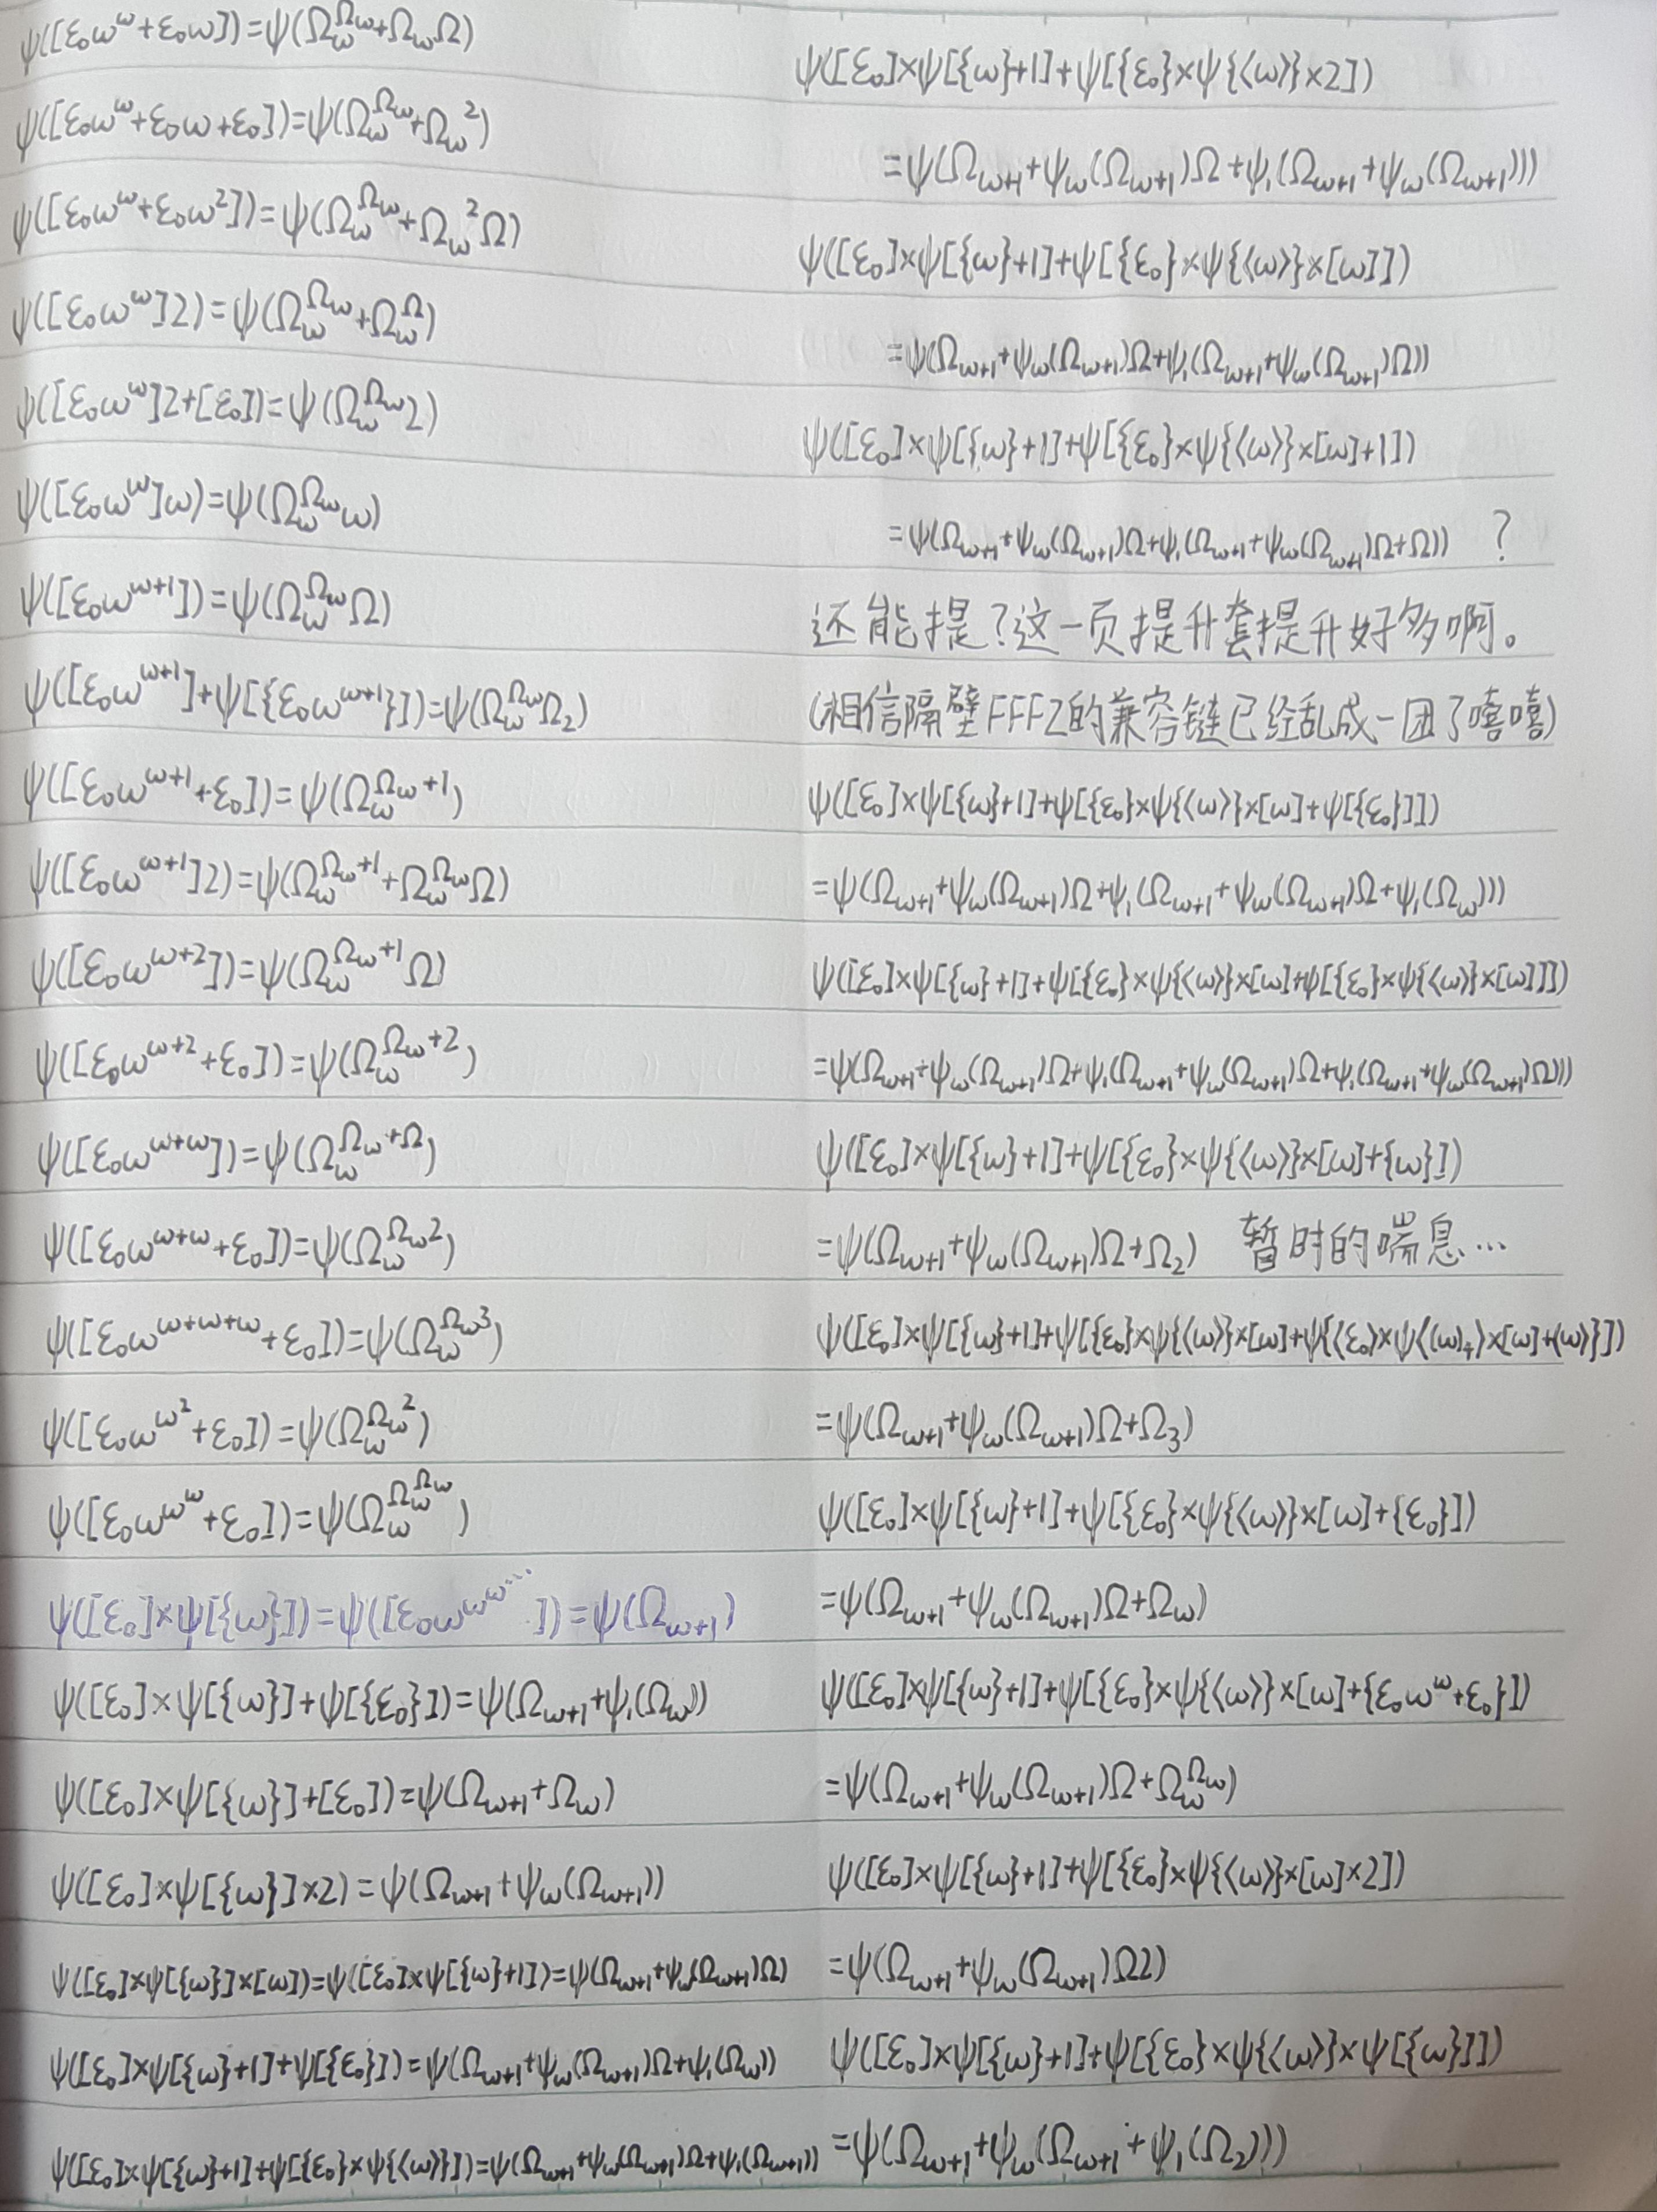 ψ([ε₀ω^ω+ε₀ω])=ψ(Ω_ω^Ω_ω+Ω_ωΩ)
ψ([ε₀ω^ω+ε₀ω+ε₀])=ψ(Ω_ω^Ω_ω+Ω_ω^2)
ψ([ε₀ω^ω+ε₀ω^2])=ψ(Ω_ω^Ω_ω+Ω_ω^2Ω)
ψ([ε₀ω^ω]2)=ψ(Ω_ω^Ω_ω+Ω_ω^Ω)
ψ([ε₀ω^ω]2+[ε₀])=ψ(Ω_ω^Ω_ω2)
ψ([ε₀ω^ω]ω)=ψ(Ω_ω^Ω_ωω)
ψ([ε₀ω^{ω+1}])=ψ(Ω_ω^Ω_ωΩ)
ψ([ε₀ω^{ω+1}]+ψ[{ε₀ω^{ω+1}}])=ψ(Ω_ω^Ω_ωΩ₂)
ψ([ε₀ω^{ω+1}+ε₀])=ψ(Ω_ω^{Ω_ω+1})
ψ([ε₀ω^{ω+1}]2)=ψ(Ω_ω^{Ω_ω+1}+Ω_ω^Ω_ωΩ)
ψ([ε₀ω^{ω+2}])=ψ(Ω_ω^{Ω_ω+1}Ω)
ψ([ε₀ω^{ω+2}+ε₀])=ψ(Ω_ω^{Ω_ω+2})
ψ([ε₀ω^{ω+ω}])=ψ(Ω_ω^{Ω_ω+Ω})
ψ([ε₀ω^{ω+ω}+ε₀])=ψ(Ω_ω^{Ω_ω2})
ψ([ε₀ω^{ω+ω+ω}+ε₀])=ψ(Ω_ω^{Ω_ω3})
ψ([ε₀ω^{ω^2}+ε₀])=ψ(Ω_ω^{Ω_ω^2})
ψ([ε₀ω^{ω^ω}+ε₀])=ψ(Ω_ω^{Ω_ω^{Ω_ω}})
ψ([ε₀]×ψ[{ω}])=ψ([ε₀ω^{ω^{ω^{...}}}])=ψ(Ω_{ω+1})
ψ([ε₀]×ψ[{ω}]+ψ[{ε₀}])=ψ(Ω_{ω+1}+ψ₁(Ω_ω))
ψ([ε₀]×ψ[{ω}]+[ε₀])=ψ(Ω_{ω+1}+Ω_ω)
ψ([ε₀]×ψ[{ω}]×2)=ψ(Ω_{ω+1}+ψ_ω(Ω_{ω+1}))
ψ([ε₀]×ψ[{ω}]×[ω])=ψ([ε₀]×ψ[{ω}+1])=ψ(Ω_{ω+1}+ψ_ω(Ω_{ω+1})Ω)
ψ([ε₀]×ψ[{ω}+1]+ψ[{ε₀}])=ψ(Ω_{ω+1}+ψ_ω(Ω_{ω+1})Ω+ψ₁(Ω_ω))
ψ([ε₀]×ψ[{ω}+1]+ψ[{ε₀}×ψ{⟨ω⟩}])=ψ(Ω_{ω+1}+ψ_ω(Ω_{ω+1})Ω+ψ₁(Ω_{ω+1}))
ψ([ε₀]×ψ[{ω}+1]+ψ[{ε₀}×ψ{⟨ω⟩}×2])
=ψ(Ω_{ω+1}+ψ_ω(Ω_{ω+1})Ω+ψ₁(Ω_{ω+1}+ψ_ω(Ω_{ω+1})))
ψ([ε₀]×ψ[{ω}+1]+ψ[{ε₀}×ψ{⟨ω⟩}×[ω]])
=ψ(Ω_{ω+1}+ψ_ω(Ω_{ω+1})Ω+ψ₁(Ω_{ω+1}+ψ_ω(Ω_{ω+1})Ω))
ψ([ε₀]×ψ[{ω}+1]+ψ[{ε₀}×ψ{⟨ω⟩}×[ω]+1])
=ψ(Ω_{ω+1}+ψ_ω(Ω_{ω+1})Ω+ψ₁(Ω_{ω+1}+ψ_ω(Ω_{ω+1})Ω+Ω)) ?
还能提?这一页提升套提升好多啊。
(相信隔壁FFFZ的兼容链已经乱成一团了嘻嘻)
ψ([ε₀]×ψ[{ω}+1]+ψ[{ε₀}×ψ{⟨ω⟩}×[ω]+ψ[{ε₀}]])
=ψ(Ω_{ω+1}+ψ_ω(Ω_{ω+1})Ω+ψ₁(Ω_{ω+1}+ψ_ω(Ω_{ω+1})Ω+ψ₁(Ω_ω)))
ψ([ε₀]×ψ[{ω}+1]+ψ[{ε₀}×ψ{⟨ω⟩}×[ω]+ψ[{ε₀}×ψ{⟨ω⟩}×[ω]]])
=ψ(Ω_{ω+1}+ψ_ω(Ω_{ω+1})Ω+ψ₁(Ω_{ω+1}+ψ_ω(Ω_{ω+1})Ω+ψ₁(Ω_{ω+1}+ψ_ω(Ω_{ω+1})Ω)))
ψ([ε₀]×ψ[{ω}+1]+ψ[{ε₀}×ψ{⟨ω⟩}×[ω]+{ω}])
=ψ(Ω_{ω+1}+ψ_ω(Ω_{ω+1})Ω+Ω₂) 暂时的喘息...
ψ([ε₀]×ψ[{ω}+1]+ψ[{ε₀}×ψ{⟨ω⟩}×[ω]+ψ{⟨ε₀⟩×ψ⟨(ω)₊⟩×[ω]+⟨ω⟩}])
=ψ(Ω_{ω+1}+ψ_ω(Ω_{ω+1})Ω+Ω₃)
ψ([ε₀]×ψ[{ω}+1]+ψ[{ε₀}×ψ{⟨ω⟩}×[ω]+{ε₀}])
=ψ(Ω_{ω+1}+ψ_ω(Ω_{ω+1})Ω+Ω_ω)
ψ([ε₀]×ψ[{ω}+1]+ψ[{ε₀}×ψ{⟨ω⟩}×[ω]+{ε₀ω^ω+ε₀}])
=ψ(Ω_{ω+1}+ψ_ω(Ω_{ω+1})Ω+Ω_ω^Ω_ω)
ψ([ε₀]×ψ[{ω}+1]+ψ[{ε₀}×ψ{⟨ω⟩}×[ω]×2])
=ψ(Ω_{ω+1}+ψ_ω(Ω_{ω+1})Ω2)
ψ([ε₀]×ψ[{ω}+1]+ψ[{ε₀}×ψ{⟨ω⟩}×ψ[{ω}]])
=ψ(Ω_{ω+1}+ψ_ω(Ω_{ω+1}+ψ₁(Ω₂)))